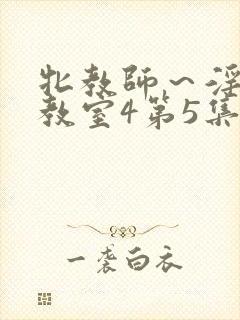 牝教师～淫
教室4第5集
一袭白衣